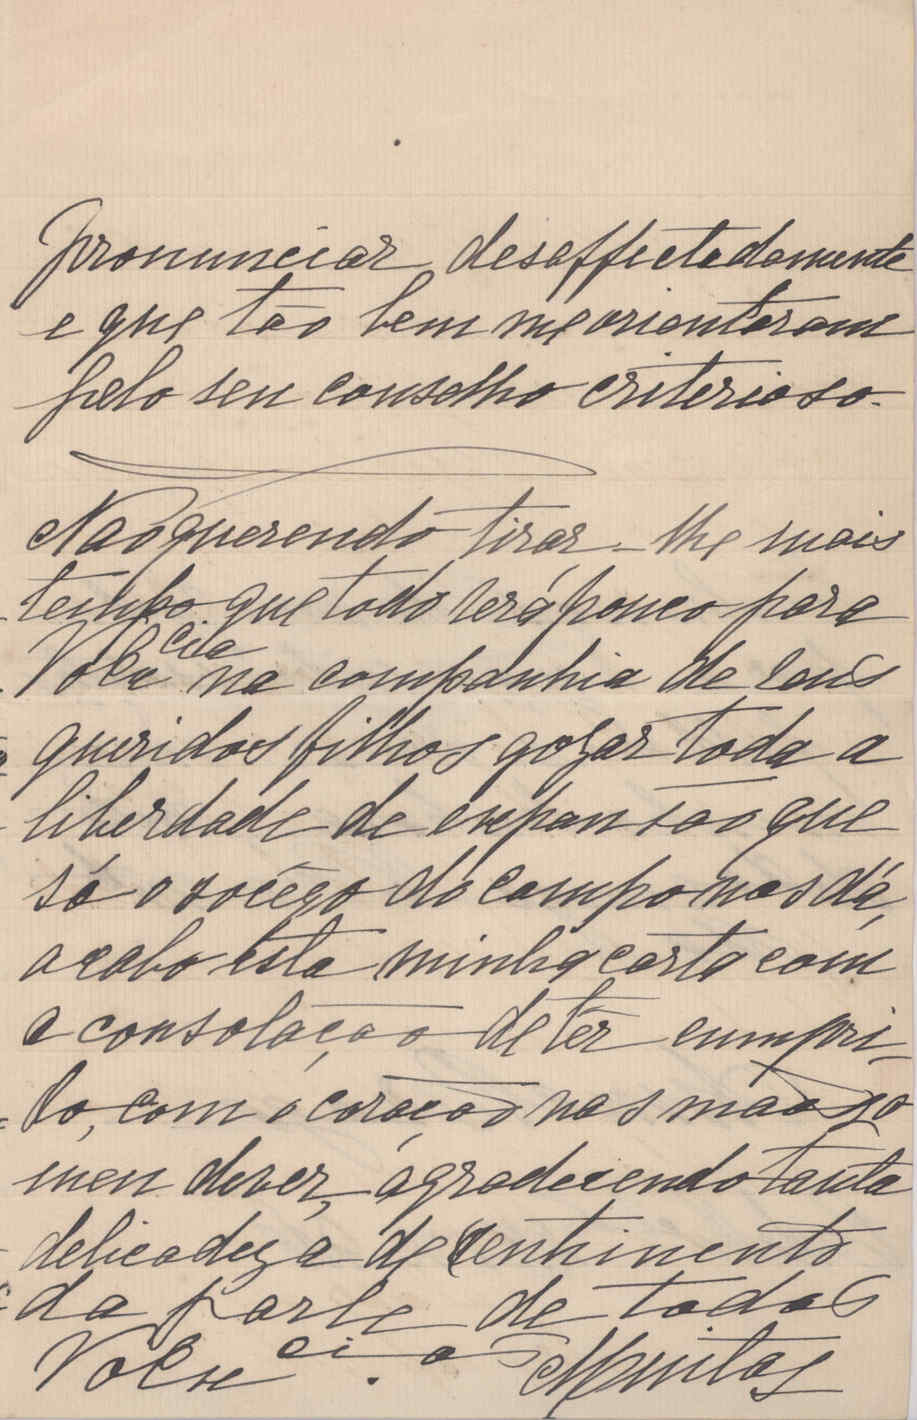 pronunciar desaffectadamente
e que tão bem me orientaram
pelo seu conselho criterioso.
Não querendo tirar-lhe mais
tempo que todo será pouco para
V. Ex.cia na companhia de seus
queridos filhos gozar toda a
liberdade de expansão que
só o socêgo do campo nos dá,
acabo esta minha carta com
a consolação de ter cumpri-
do, com o coração nas mãos, o
meu dever, agradecendo tanta
delicadeza de sentimento
da parte de todas
V. Ex.cias. Muitas